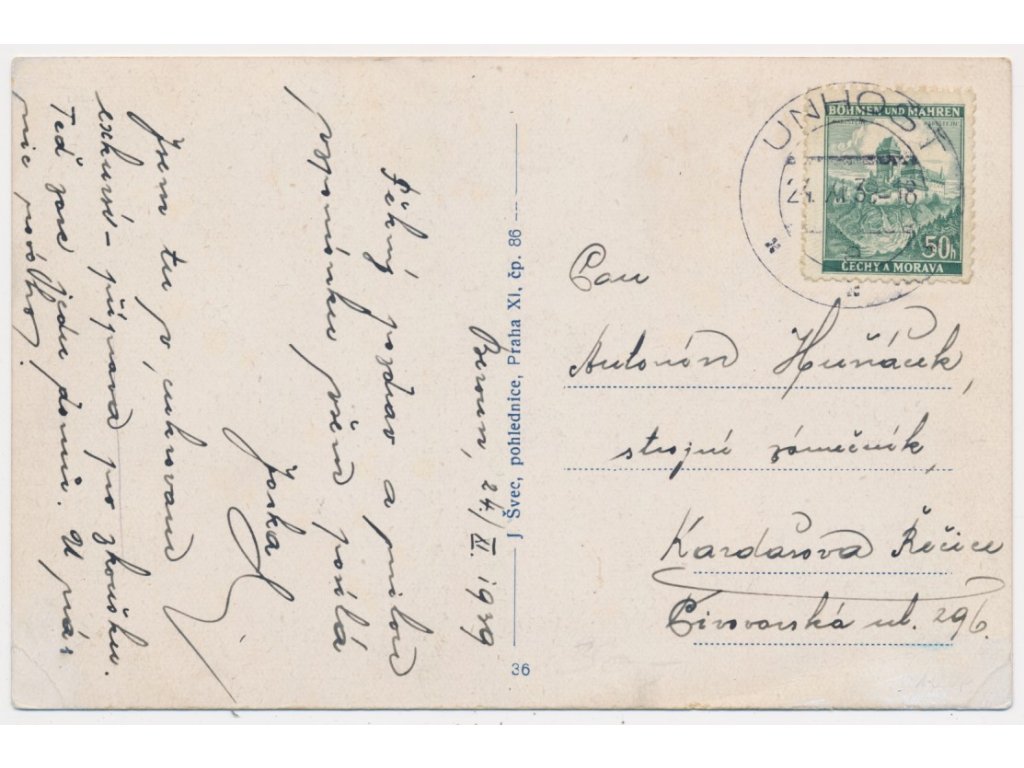 Beroun, 24./XI. 1939
Pěkný pozdrav a milou
vzpomínku všem posílá
Joska
Jsem tu v cukrovaru
exkursí - příprava po zkoušku.
Teď zase jedu domů. U nás
nic nového!
J Švec, pohlednice, Praha XI, čp. 86
36
UNHOŠŤ
24. XI. 39-18
BÖHMEN UND MÄHREN
50h
ČECHY A MORAVA
Pan
Antonín Huňáček,
strojní zámečník,
Kardašova Řečice
Pivovarská ul. 296.